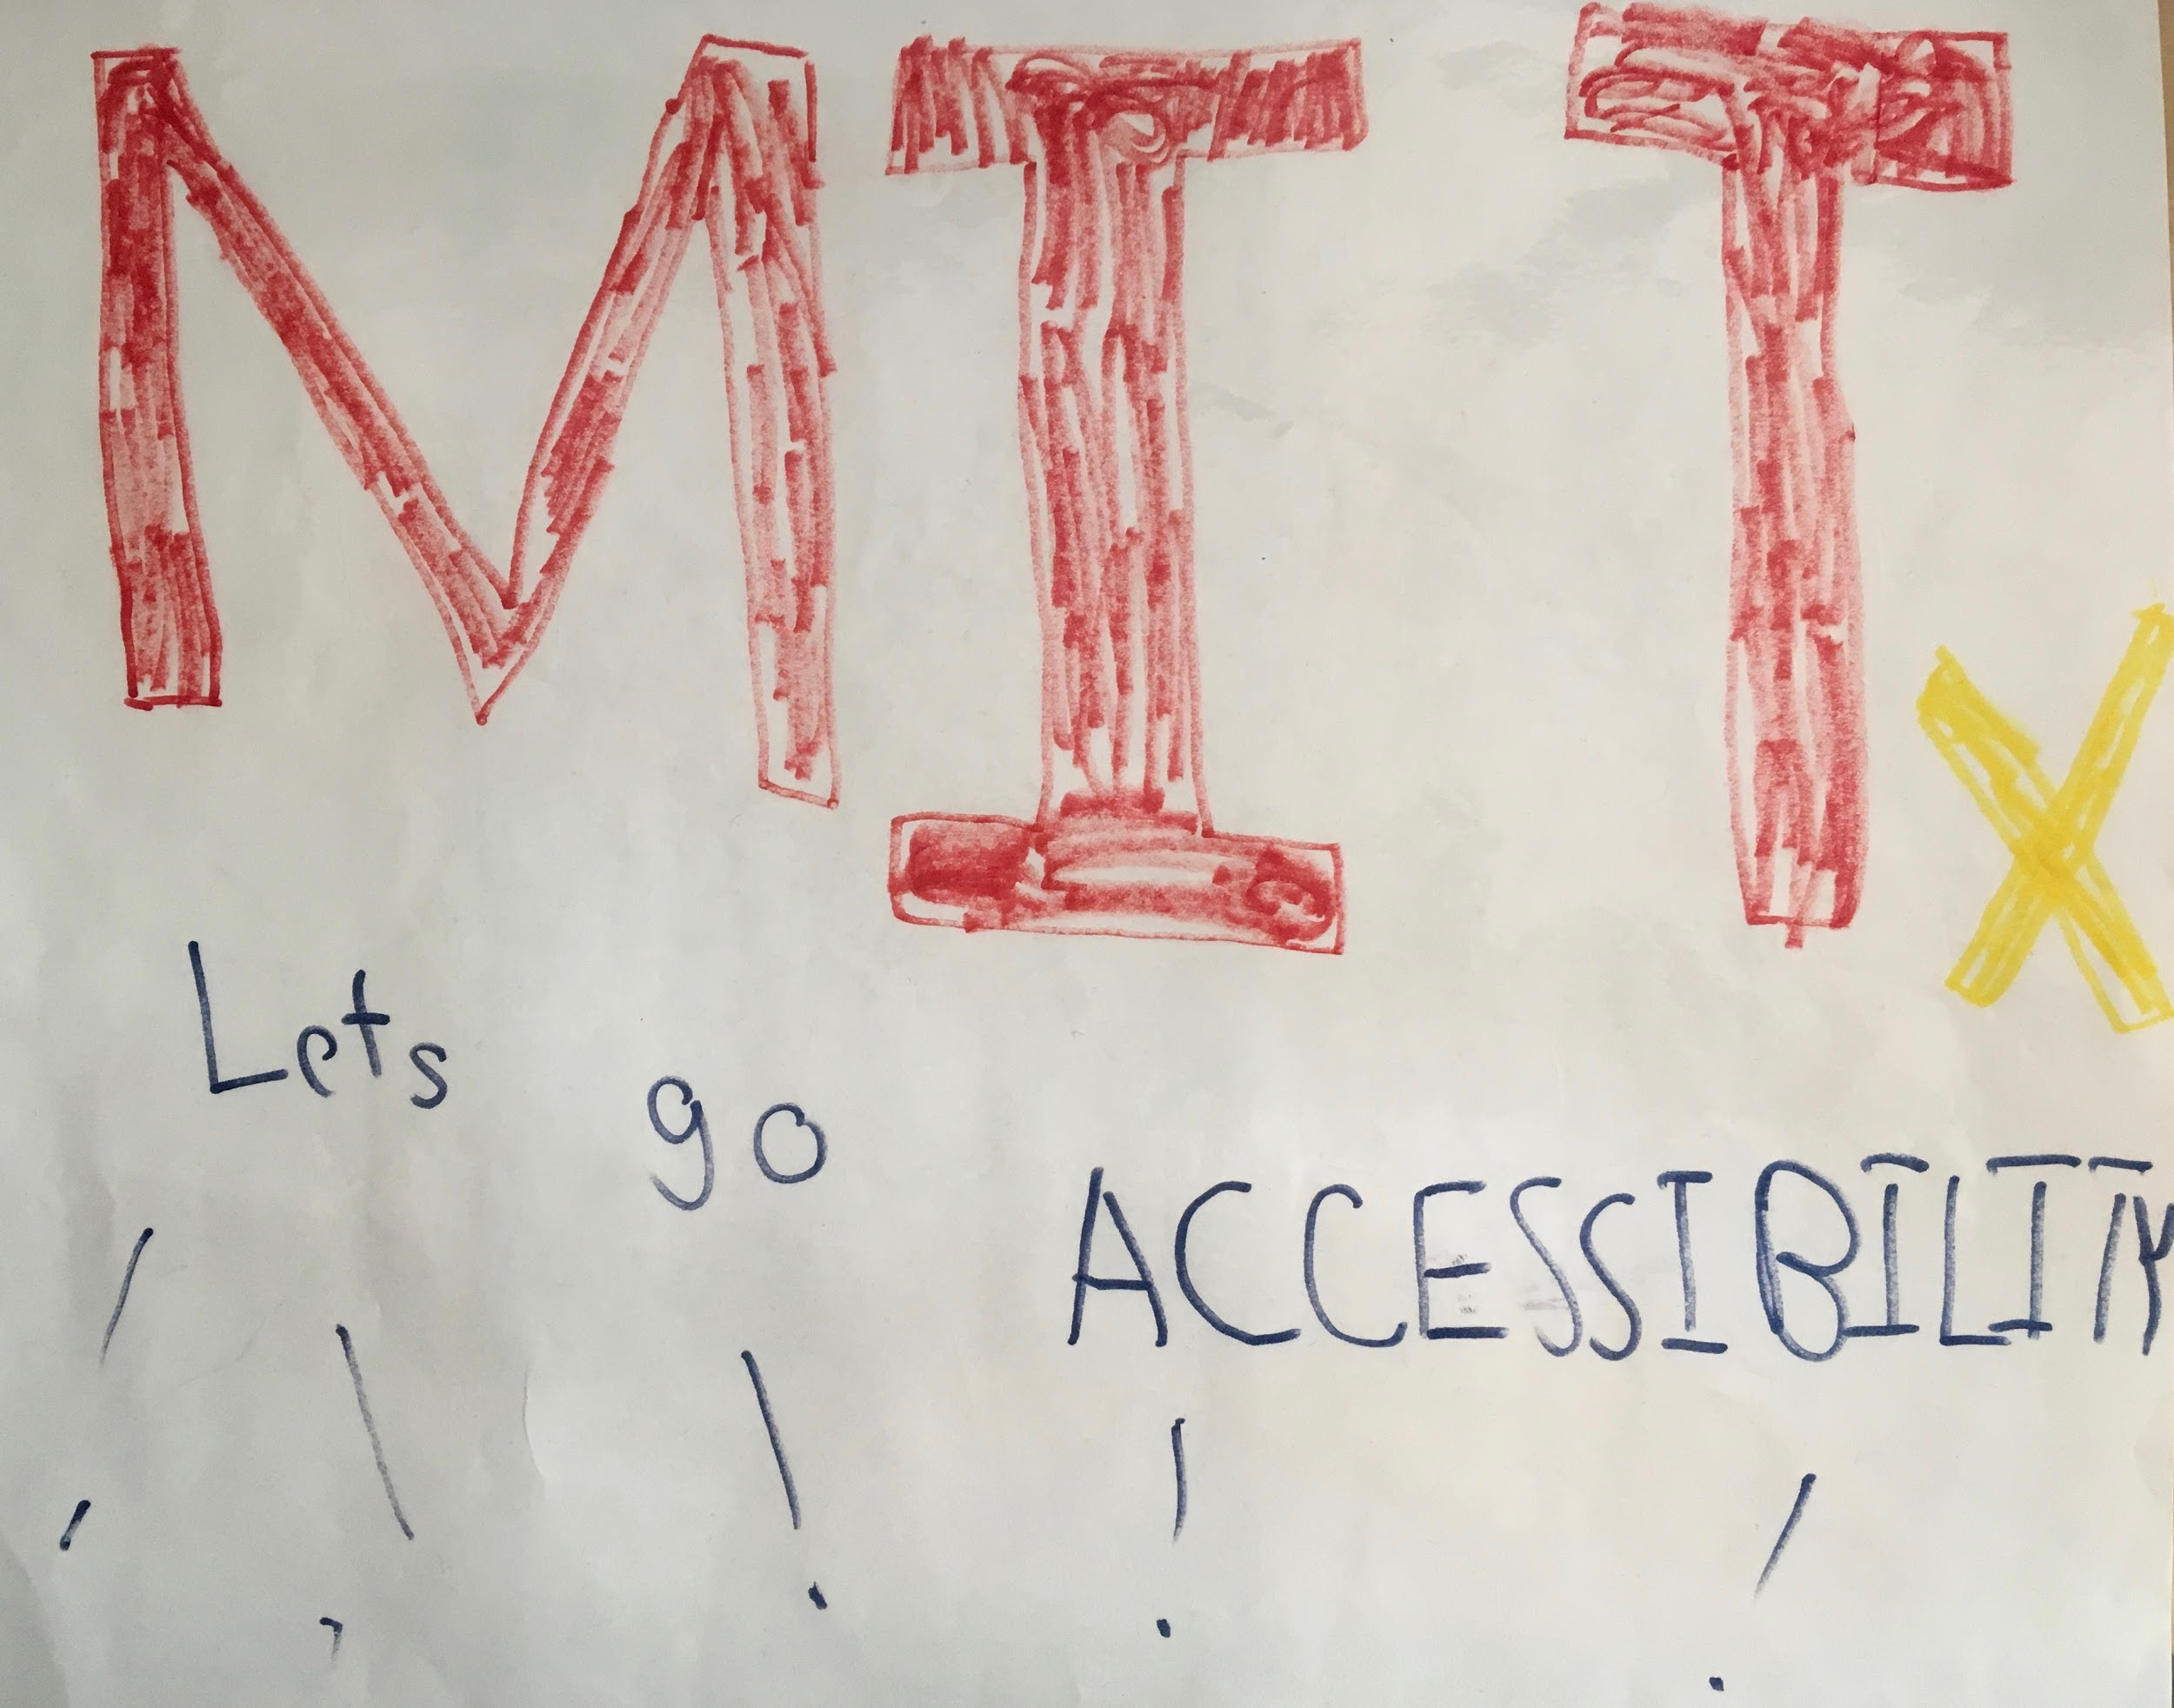 MIT x
Lets go ACCESSIBILITY
! ! ! ! !